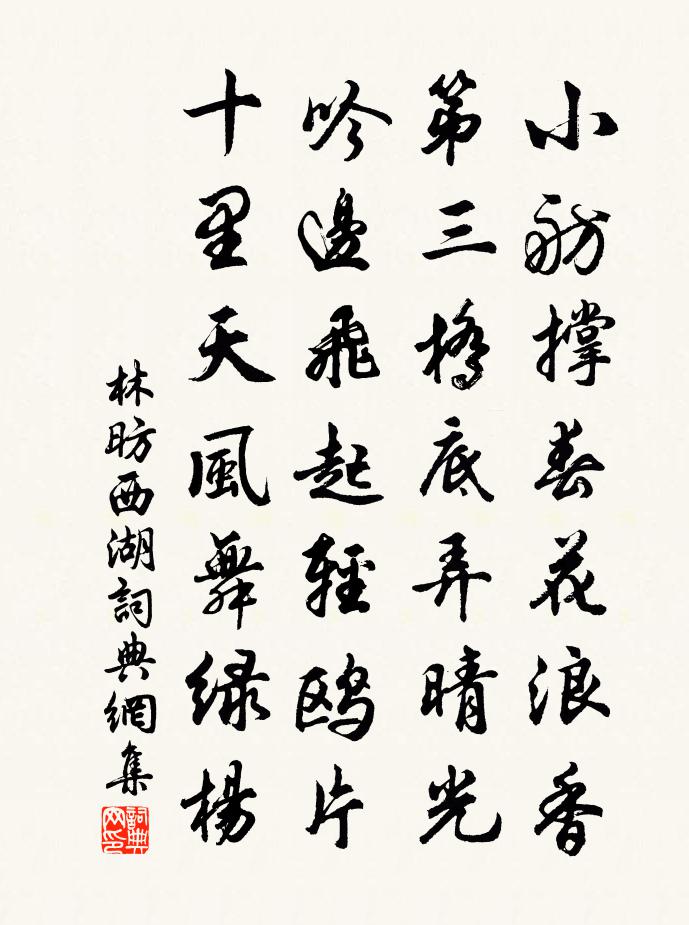 小舫撐春花浪香
第三橋底弄晴光
吟邊飛起輕鷗片
十里天風舞綠楊
林昉西湖詞典網集
詞典网印